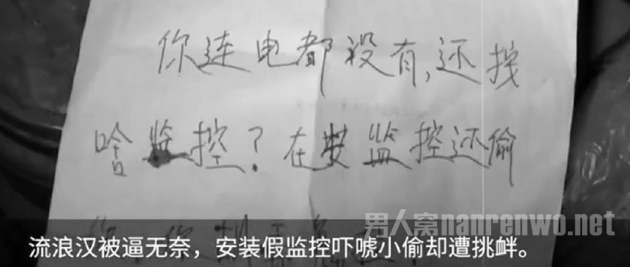 你连电都没有,还找
啥监控?在安监控还偷
男人窝nanrenwo.net
流浪汉被逼无奈，安装假监控吓唬小偷却遭挑衅。